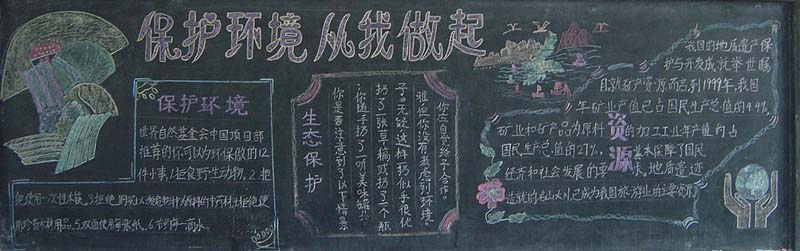 保护环境从我做起
保护环境
世界自然基金会中国项目部
推荐的你可以为环保做的12
件小事:1.拒食野生动物。2.拒
绝使用一次性木筷。3.拒绝购买以
用珍贵木材用品。5.双面使用每张纸。6.节约每一滴水。
生态保护
你是否注意到了以下情景
:你随手扔了一听美味罐
扔了一张草稿或扔了一个瓶
子。无疑这样扔似乎很优
雅但你没有考虑到环境。
资源
我国的地质遗产保
护与开发成就举世瞩
目就矿产资源而言到1999年,我国
年矿业产值已占国民生产总值的4.4%
矿业和矿产品为原料的加工业年产值约占
国民生产总值的27%,基本保障了国民
经济和社会发展的要求,地质遗迹
造就的名山大川,已成为我国旅游业的主要资源